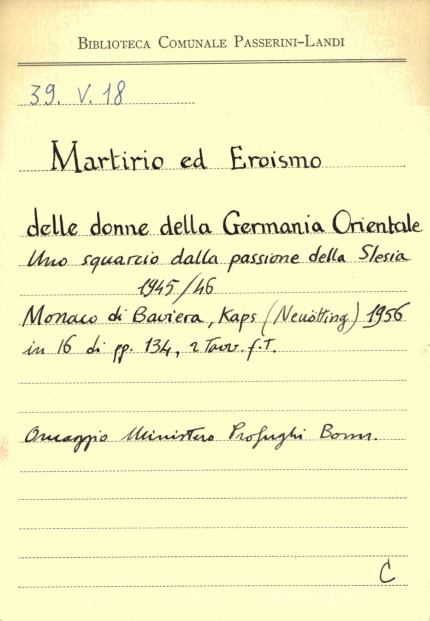 BIBLIOTECA COMUNALE PASSERINI-LANDI
39. V. 18
Martirio ed Eroismo
delle donne della Germania Orientale
Uno squarcio dalla passione della Slesia
1945/46
Monaco di Baviera, Kaps (Neuötting) 1956
in 16 di pp. 134, 2 Tavv. f.T.
Omaggio Ministero Profughi Bonn.
C